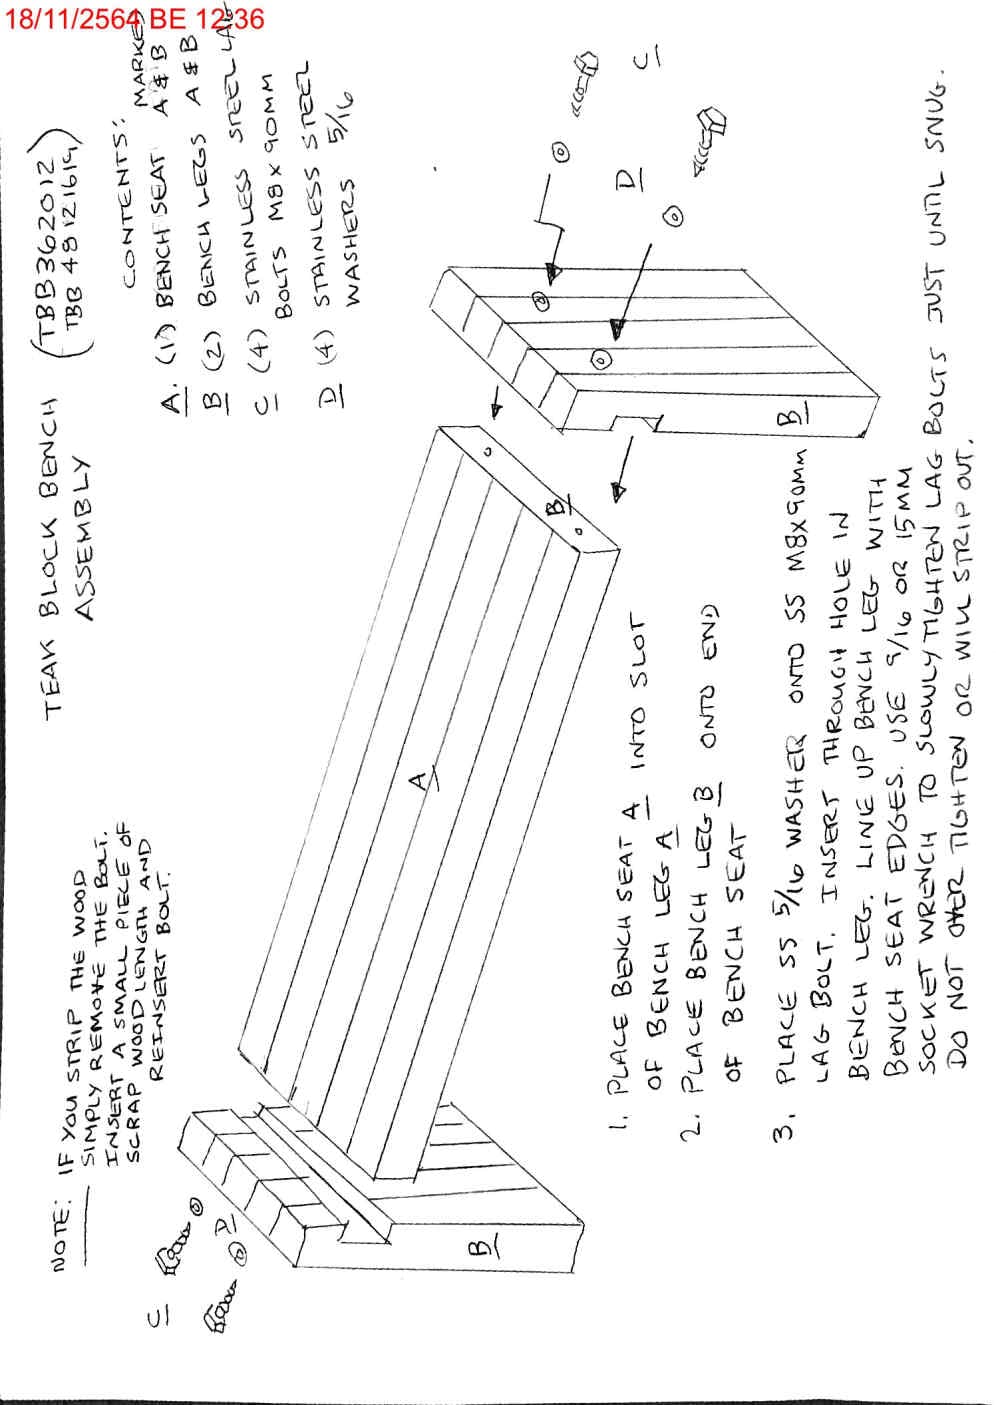 18/11/2564 BE 12:36
TEAK BLOCK BENCH (TBB362012)
ASSEMBLY TBB 48121619)
CONTENTS: MARKED
A. (1) BENCH SEAT A & B
B (2) BENCH LEGS A & B
C (4) STAINLESS STEEL LAG
BOLTS M8 X 90MM
D (4) STAINLESS STEEL
WASHERS 5/16
NOTE: IF YOU STRIP THE WOOD
SIMPLY REMOVE THE BOLT.
INSERT A SMALL PIECE OF
SCRAP WOOD LENGTH AND
REINSERT BOLT.
C
D
B
A
B
B
D
C
1. PLACE BENCH SEAT A INTO SLOT
OF BENCH LEG A
2. PLACE BENCH LEG B ONTO END
OF BENCH SEAT
3. PLACE SS 5/16 WASHER ONTO SS M8X90MM
LAG BOLT. INSERT THROUGH HOLE IN
BENCH LEG. LINE UP BENCH LEG WITH
BENCH SEAT EDGES. USE 9/16 OR 15MM
SOCKET WRENCH TO SLOWLY TIGHTEN LAG BOLTS JUST UNTIL SNUG.
DO NOT OVER TIGHTEN OR WILL STRIP OUT.